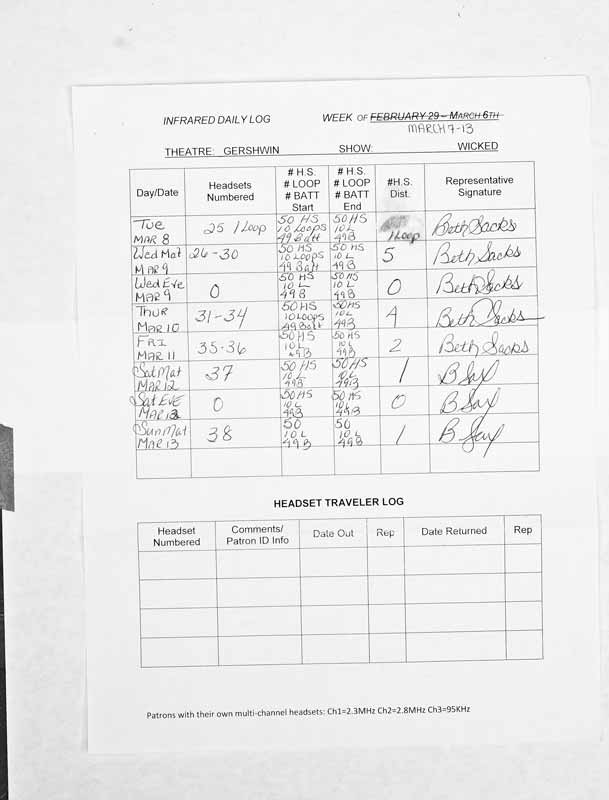 INFRARED DAILY LOG WEEK OF FEBRUARY 29 – MARCH 6TH
MARCH 7-13
THEATRE: GERSHWIN SHOW: WICKED
Day/Date Headsets Numbered # H.S. # LOOP # BATT Start # H.S. # LOOP # BATT End #H.S. Dist. Representative Signature
Tue MAR 8 25 1 Loop 50 HS 10 Loops 49 Batt 50 HS 10 L 49 B 1 Loop Beth Sacks
Wed Mat MAR 9 26-30 50 HS 10 Loops 49 Batt 50 HS 10 L 49 B 5 Beth Sacks
Wed Eve MAR 9 0 50 HS 10 L 49 B 50 HS 10 L 49 B 0 Beth Sacks
Thur MAR 10 31-34 50 HS 10 Loops 49 Batt 50 HS 10 L 49 B 4 Beth Sacks
FRI MAR 11 35-36 50 HS 10 L 49 B 50 HS 10 L 49 B 2 Beth Sacks
Sat Mat MAR 12 37 50 HS 10 L 49 B 50 HS 10 L 49 B 1 B Sax
Sat EVE MAR 12 0 50 HS 10 L 49 B 50 HS 10 L 49 B 0 B Sax
Sun Mat MAR 13 38 50 10 L 49 B 50 10 L 49 B 1 B Sax
HEADSET TRAVELER LOG
Headset Numbered Comments/ Patron ID Info Date Out Rep Date Returned Rep
Patrons with their own multi-channel headsets: Ch1=2.3MHz Ch2=2.8MHz Ch3=95KHz